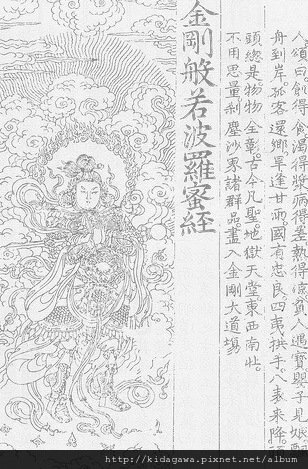 渴得漿病得差熱得涼貧人遇寶嬰子見娘飄
舟到岸孤客還鄉旱逢甘雨國有忠良四夷拱手八表來降頭
頭總是物物全彰古今凡聖地獄天堂東西南北
不用思量剎塵沙界諸群品盡入金剛大道場
金剛般若波羅蜜經
http://kidagawa.pixnet.net/album